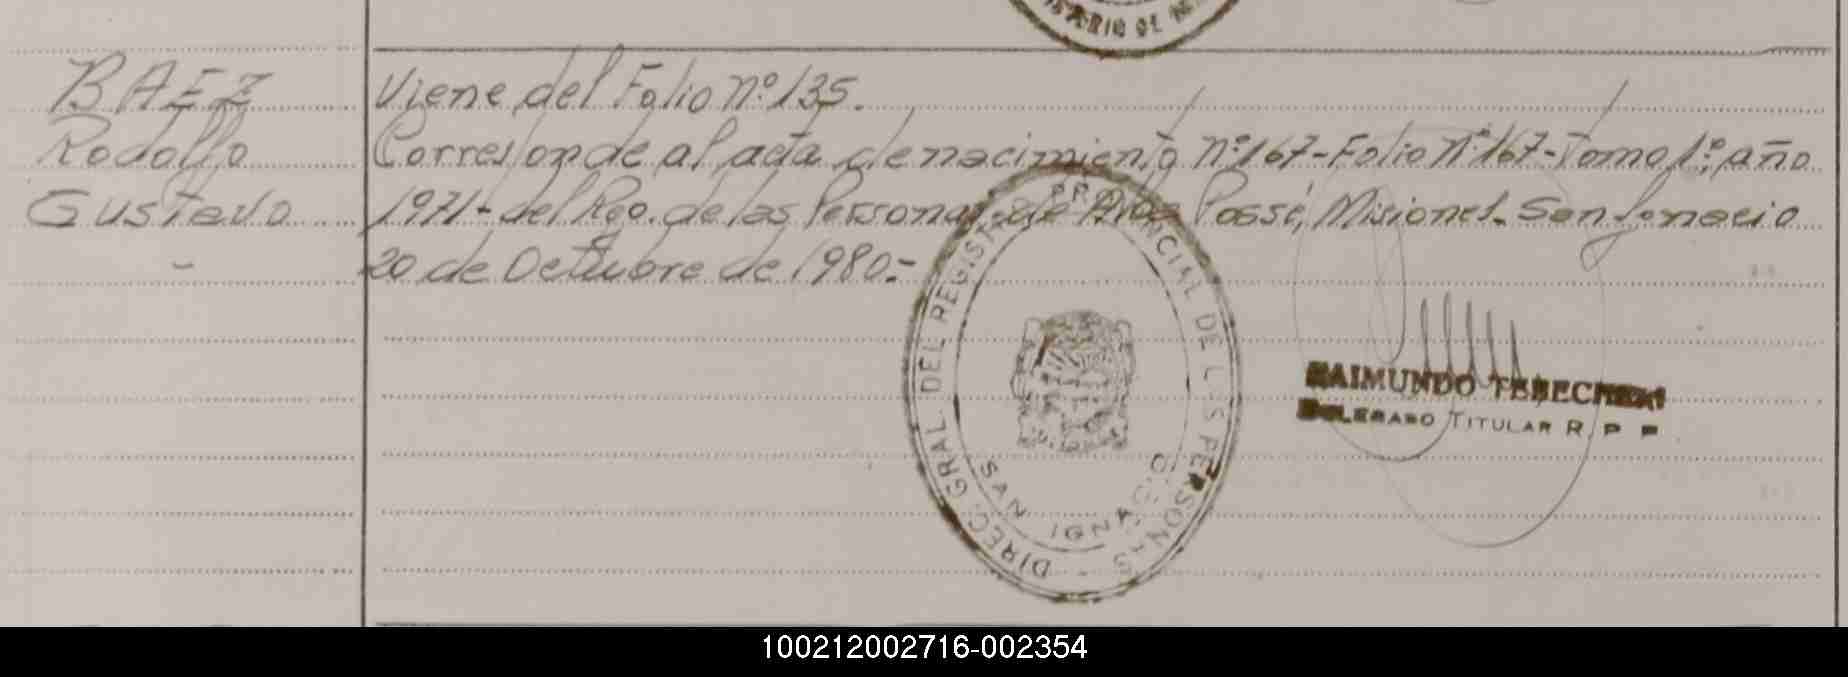 BAEZ
Rodolfo
Gustavo
-
Viene del Folio Nº 135.
Corresponde al acta de nacimiento Nº 167-Folio Nº 167-Tomo 1º, año
1971- del Reg. de las Personas de Posse, Misiones. San Ignacio
20 de Octubre de 1980.-
DIREC. GRAL. DEL REGISTRO PROVINCIAL DE LAS PERSONAS
SAN IGNACIO
RAIMUNDO
DELEGADO TITULAR R. P. P.
100212002716-002354